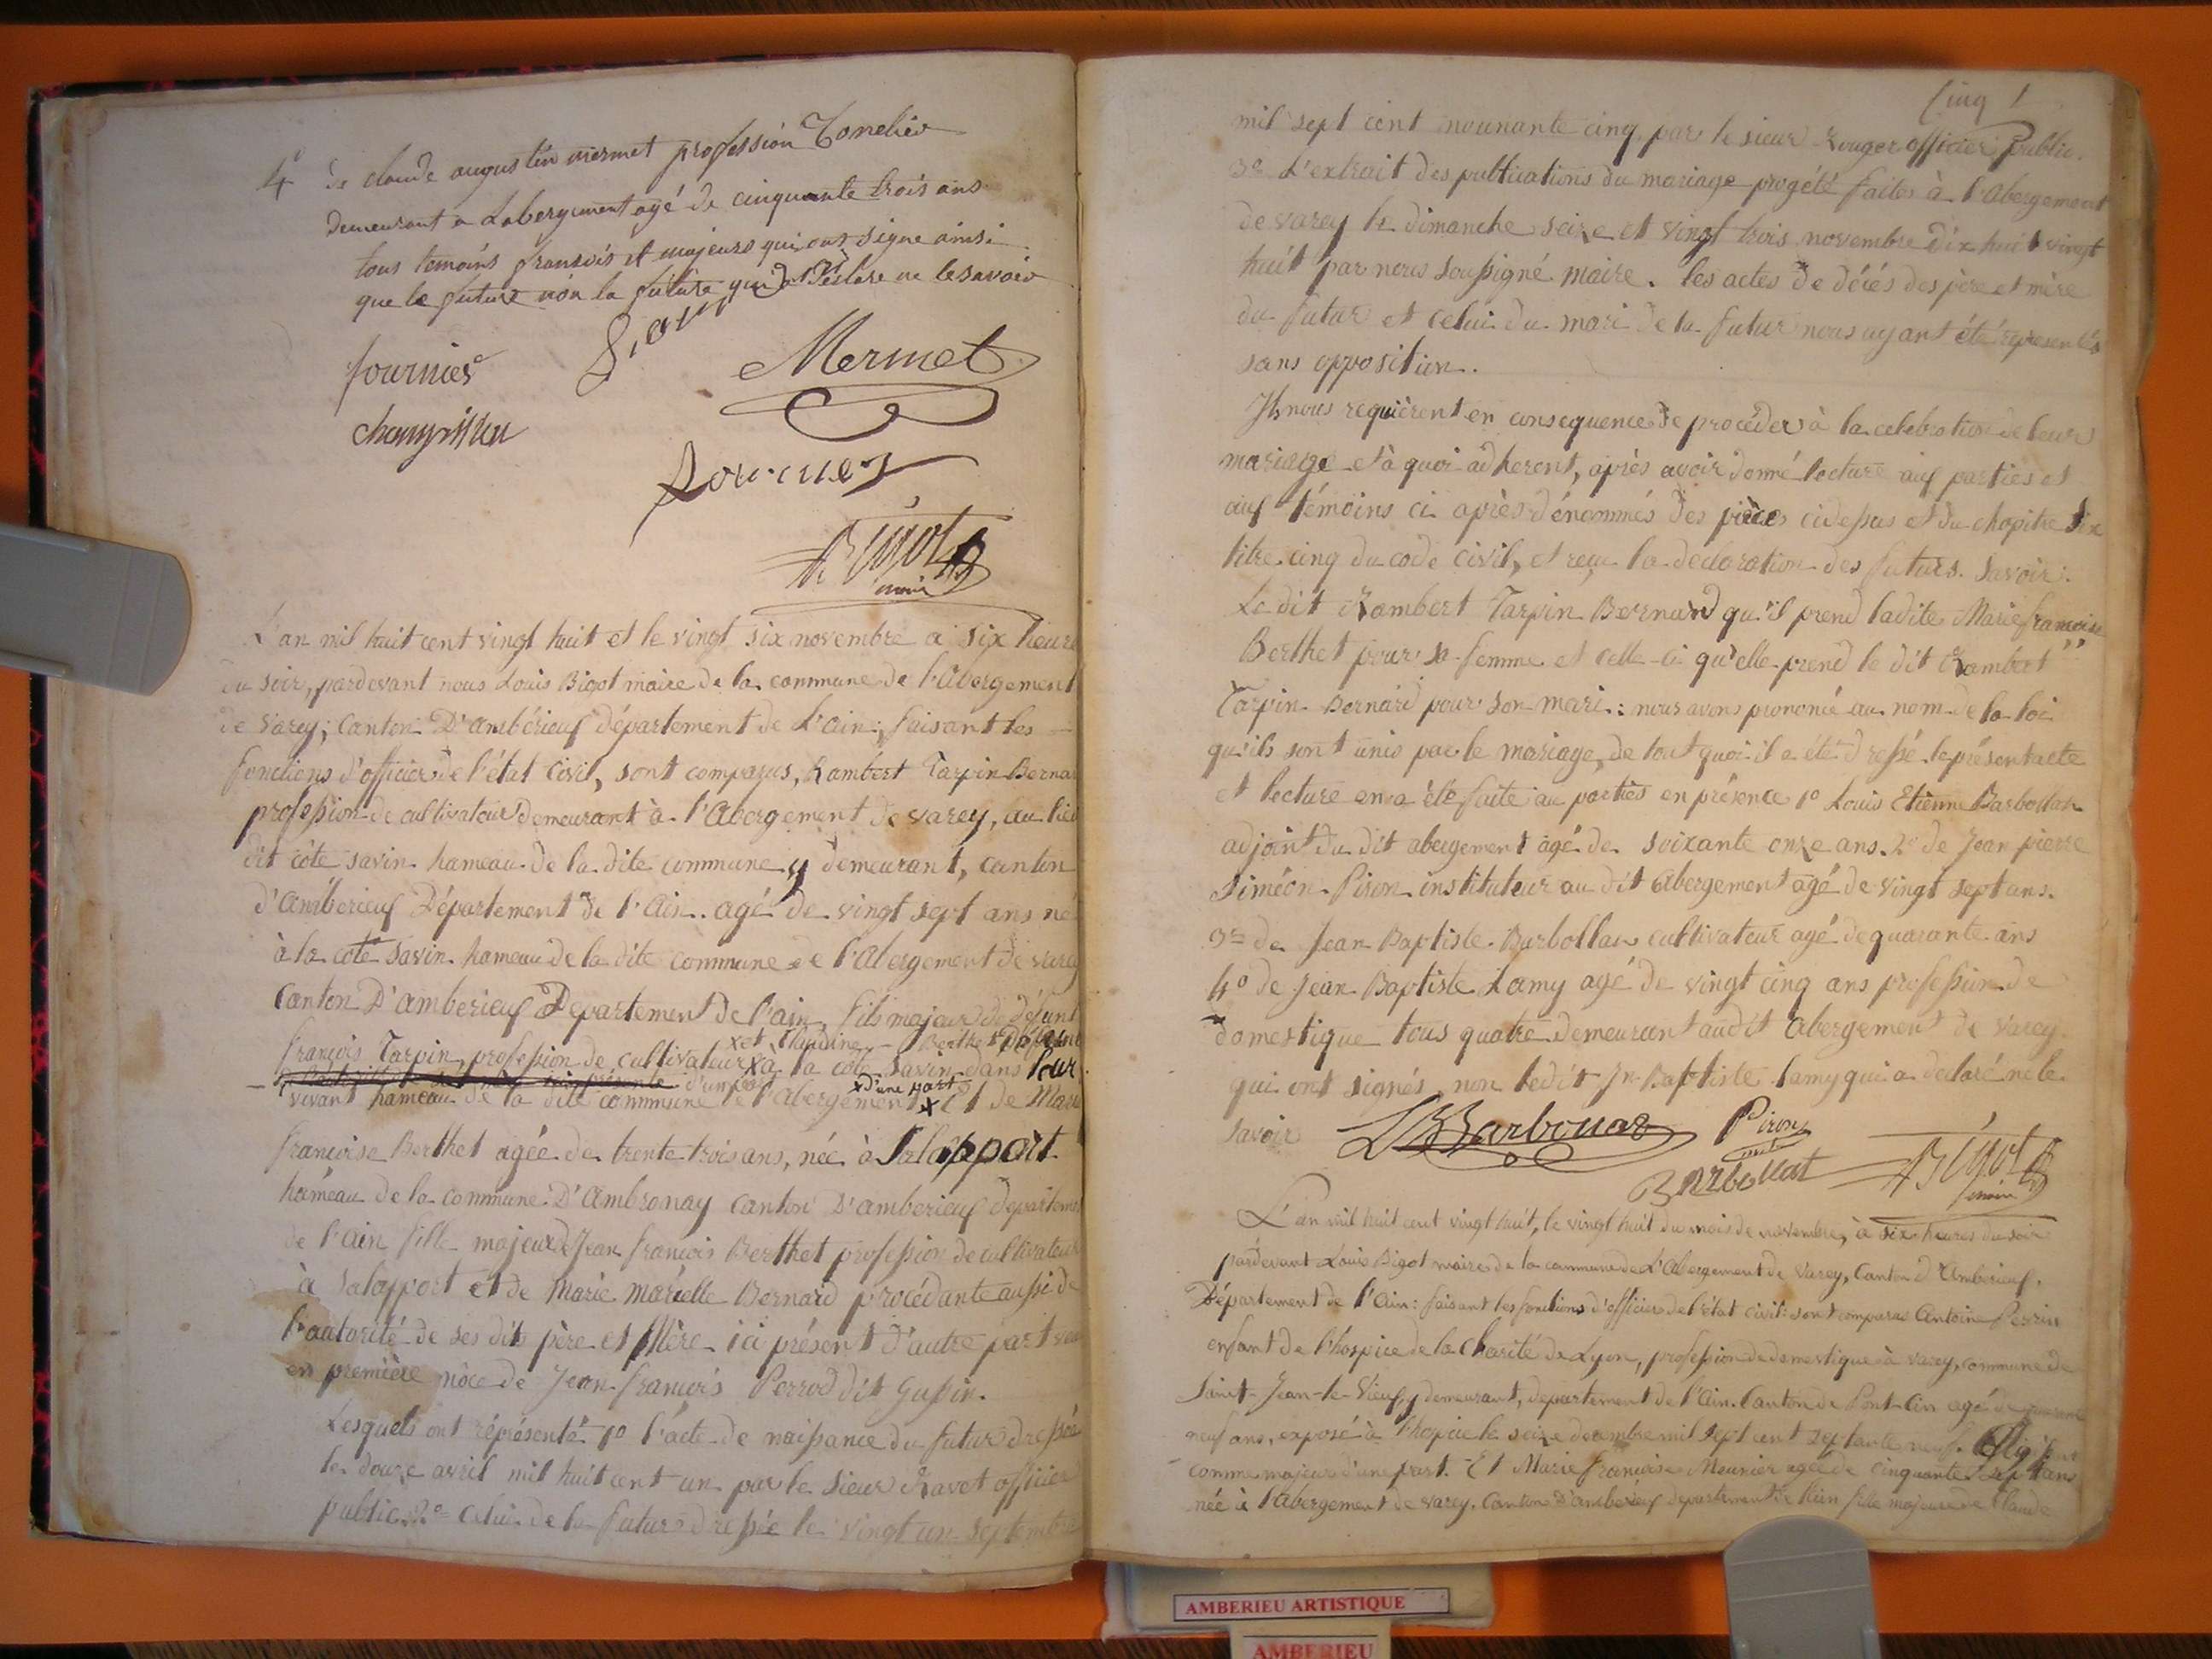 4° de claude augustin mermet profession Tonelier
demeurant a Labergement agé de cinquante trois ans
tous temoins francois et majeurs qui ont signe ainsi
que le future non la future qui a déclare ne le savoir
fournier
Mermet
fournier
Bigot
maire
L'an mil huit cent vingt huit et le vingt six novembre a six heure
du soir, pardevant nous Louis Bigot maire de la commune de l'Abergement
de Varey; canton D'ambérieuf département de L'ain; faisant les
fonctions d'officier de l'état Civil, sont comparus, Rambert Tarpin Berna
profession de cultivateur demeurant à l'Abergement de varey, au lieu
dit côte savin hameau de la dite commune y demeurant, canton
d'Ambérieuf Département de l'Ain. agé de vingt sept ans né
à la côte Savin hameau de la dite commune de l'Abergement de varey
Canton D'amberieuf Departement de l'ain, fils majeur de défunt
x et Claudine Berthet Défunt
françois Tarpin, profession de cultivateur x à la côte Savin dans leur
x d'une part
vivant hameau de la dite commune de l'Abergement x Et de Marie
françoise Berthet agée de trente trois ans, née à Salapport
hameau de la commune D'Ambronay canton D'amberieuf departement
de l'ain fille majeur de Jean françois Berthet profession de cultivateur
à Salapport et de Marie marielle Bernard procédante aussi de
l'autorité de ses dits père et Mère ici présent d'autre part veu
en première nôce de Jean françois Perrod dit Gussin.
Lesquels ont réprésenté 1° l'acte de naissance du futur dressée
le douze avril mil huit cent un par le sieur Ravet officier
public. 2° celui de la futur dressée le vingt un septembre
Cinq
mil sept cent nounante cinq par le sieur Rouger officier public.
3° L'extrait des publications du mariage progété faites à l'Abergement
de varey le dimanche seize et vingt trois novembre dix huit vingt
huit par nous soussigné maire. les actes de décés des père et mère
du futur et celui du mari de la futur nous ayant été representés
sans opposition.
Ils nous requièrent en consequence de procéder à la celebration de leur
mariage et à quoi adherent, après avoir donné lecture auf parties et
auf témoins ci après dénommés des pièces cidessus et du chapitre six
titre cinq du code civil, et reçu la declaration des futurs. Savoir:
Le dit Rambert Tarpin Bernard qu'il prend ladite Marie françoise
Berthet pour sa femme et celle-ci qu'elle prend le dit Rambert
Tarpin Bernard pour son mari: nous avons prononcé au nom de la loi
qu'ils sont unis par le mariage, de tout quoi il a été dressé le présent acte
et lecture en a été faite au parties en présence 1° Louis Etienne Barbollat
adjoint du dit abergement agé de soixante onze ans. 2° de Jean pierre
Siméon Piron instituteur au dit Abergement agé de vingt sept ans.
3° de Jean Baptiste Barbollat cultivateur agé de quarante ans
4° de Jean Baptiste Lamy agé de vingt cinq ans profession de
domestique tous quatre demeurant audit Abergement de Varey
qui ont signés, non ledit Jn Baptiste lamy qui a declaré ne le
savoir
Piron
Barbollat
Bigot
maire
L'an mil huit cent vingt huit, le vingt huit du mois de novembre, à six heures du soir
pardevant Louis Bigot maire de la commune de L'Abergement de Varey, Canton d'Amberieuf,
Département de l'Ain: faisant les fonctions d'officier de l'état civil: sont comparus Antoine Perrin
enfant de l'hospice de la Charité de Lyon, profession de domestique à Varey, commune de
Saint-Jean-le-Vieuf y demeurant, departement de l'Ain. Canton de Pont-Ain agé de quarante
neuf ans, exposé à l'hopice le seize decembre mil sept cent septante neuf.
comme majeur d'une part. Et Marie françoise Meunier agée de cinquante sept ans
née à l'Abergement de varey. Canton D'amberieuf departement de l'Ain fille majeure de Claude
AMBERIEU ARTISTIQUE
AMBERIEU